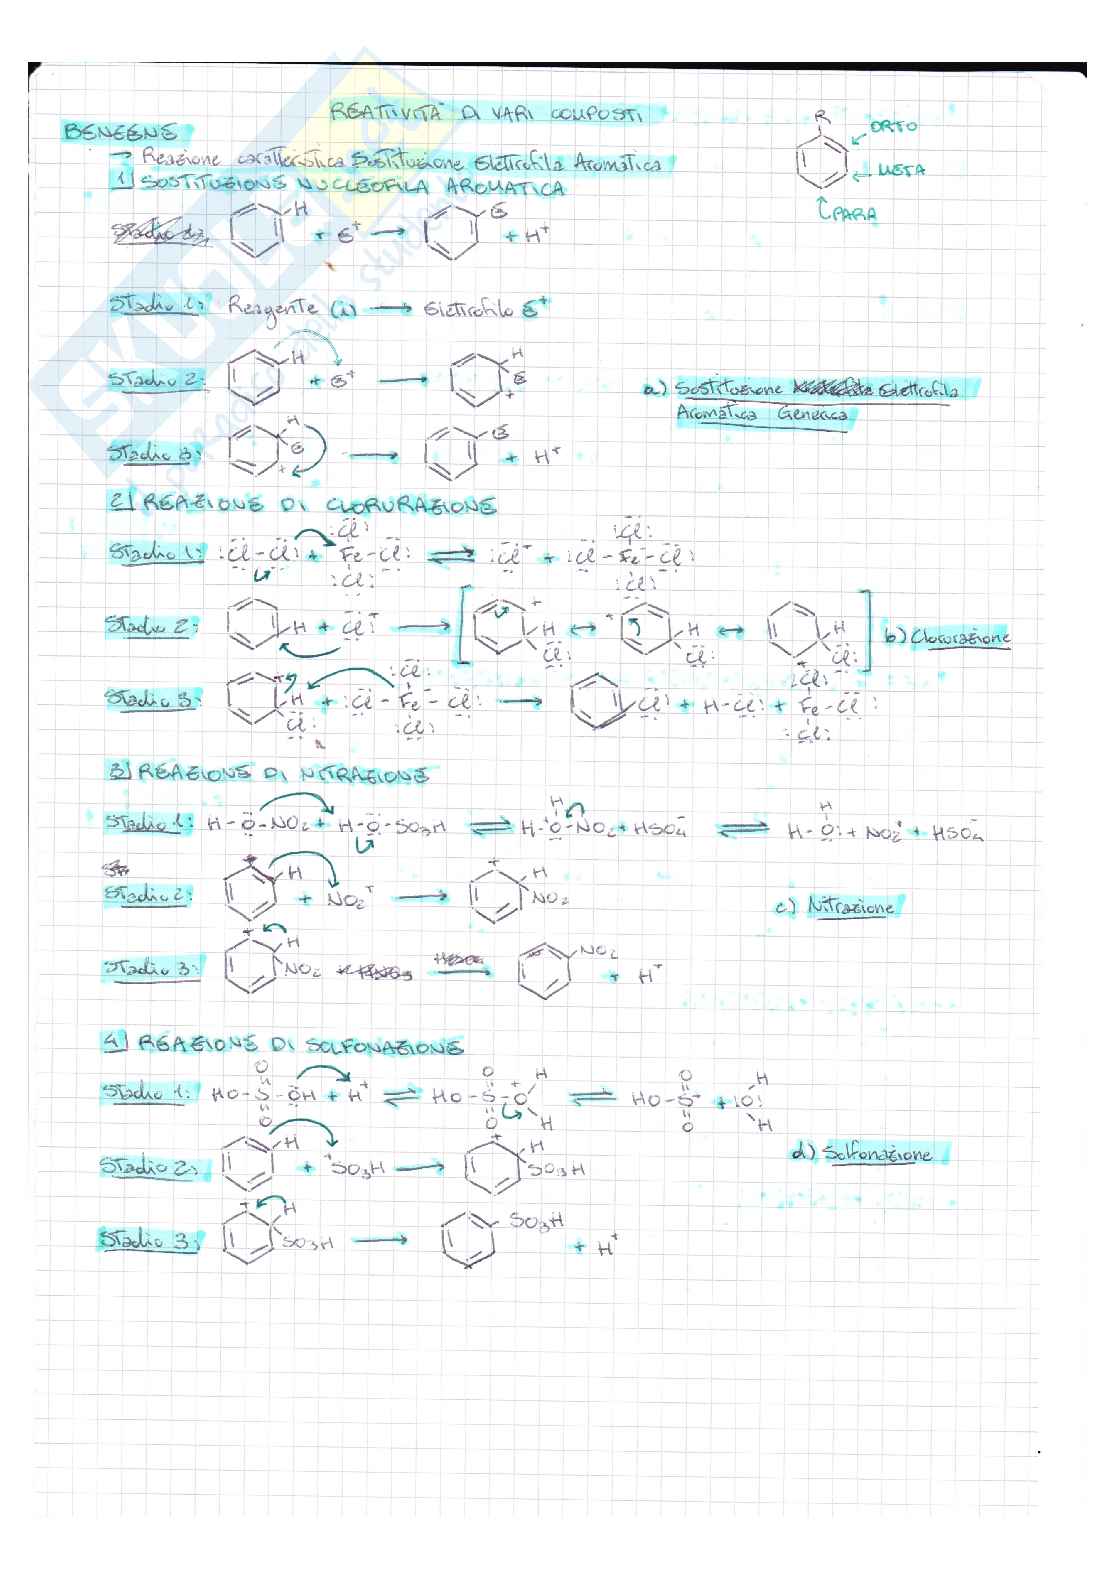 REATTIVITÀ DI VARI COMPOSTI
BENZENE
→ Reazione caratteristica Sostituzione Elettrofila Aromatica
R
ORTO
META
PARA
1) SOSTITUZIONE NUCLEOFILA AROMATICA
H + E⁺ → E + H⁺
Stadio 1: Reagente (i) → Elettrofilo E⁺
Stadio 2: H + E⁺ → H E +
a) Sostituzione Elettrofila
Aromatica Generica
Stadio 3: H E + → E + H⁺
2) REAZIONE DI CLORURAZIONE
Stadio 1: Cl - Cl + Cl Fe - Cl Cl ⇌ Cl⁻ + Cl - Fe⁻ - Cl Cl Cl
Stadio 2: H + Cl⁺ → [ + H Cl ↔ + H Cl ↔ H Cl + ]
b) Clorurazione
Stadio 3: + H Cl + Cl - Fe⁻ - Cl Cl Cl → Cl + H - Cl + Fe - Cl Cl Cl
3) REAZIONE DI NITRAZIONE
Stadio 1: H - O - NO₂ + H - O - SO₃H ⇌ H - O⁺ - NO₂ H + HSO₄⁻ ⇌ H - O H + NO₂⁺ + HSO₄⁻
Stadio 2: H + NO₂⁺ → + H NO₂
c) Nitrazione
Stadio 3: + H NO₂ → NO₂ + H⁺
4) REAZIONE DI SOLFONAZIONE
Stadio 1: HO - S - OH O O + H⁺ ⇌ HO - S - O⁺ O O H H ⇌ HO - S⁺ O O + O H H
Stadio 2: H + ⁺SO₃H → + H SO₃H
d) Solfonazione
Stadio 3: + H SO₃H → SO₃H + H⁺